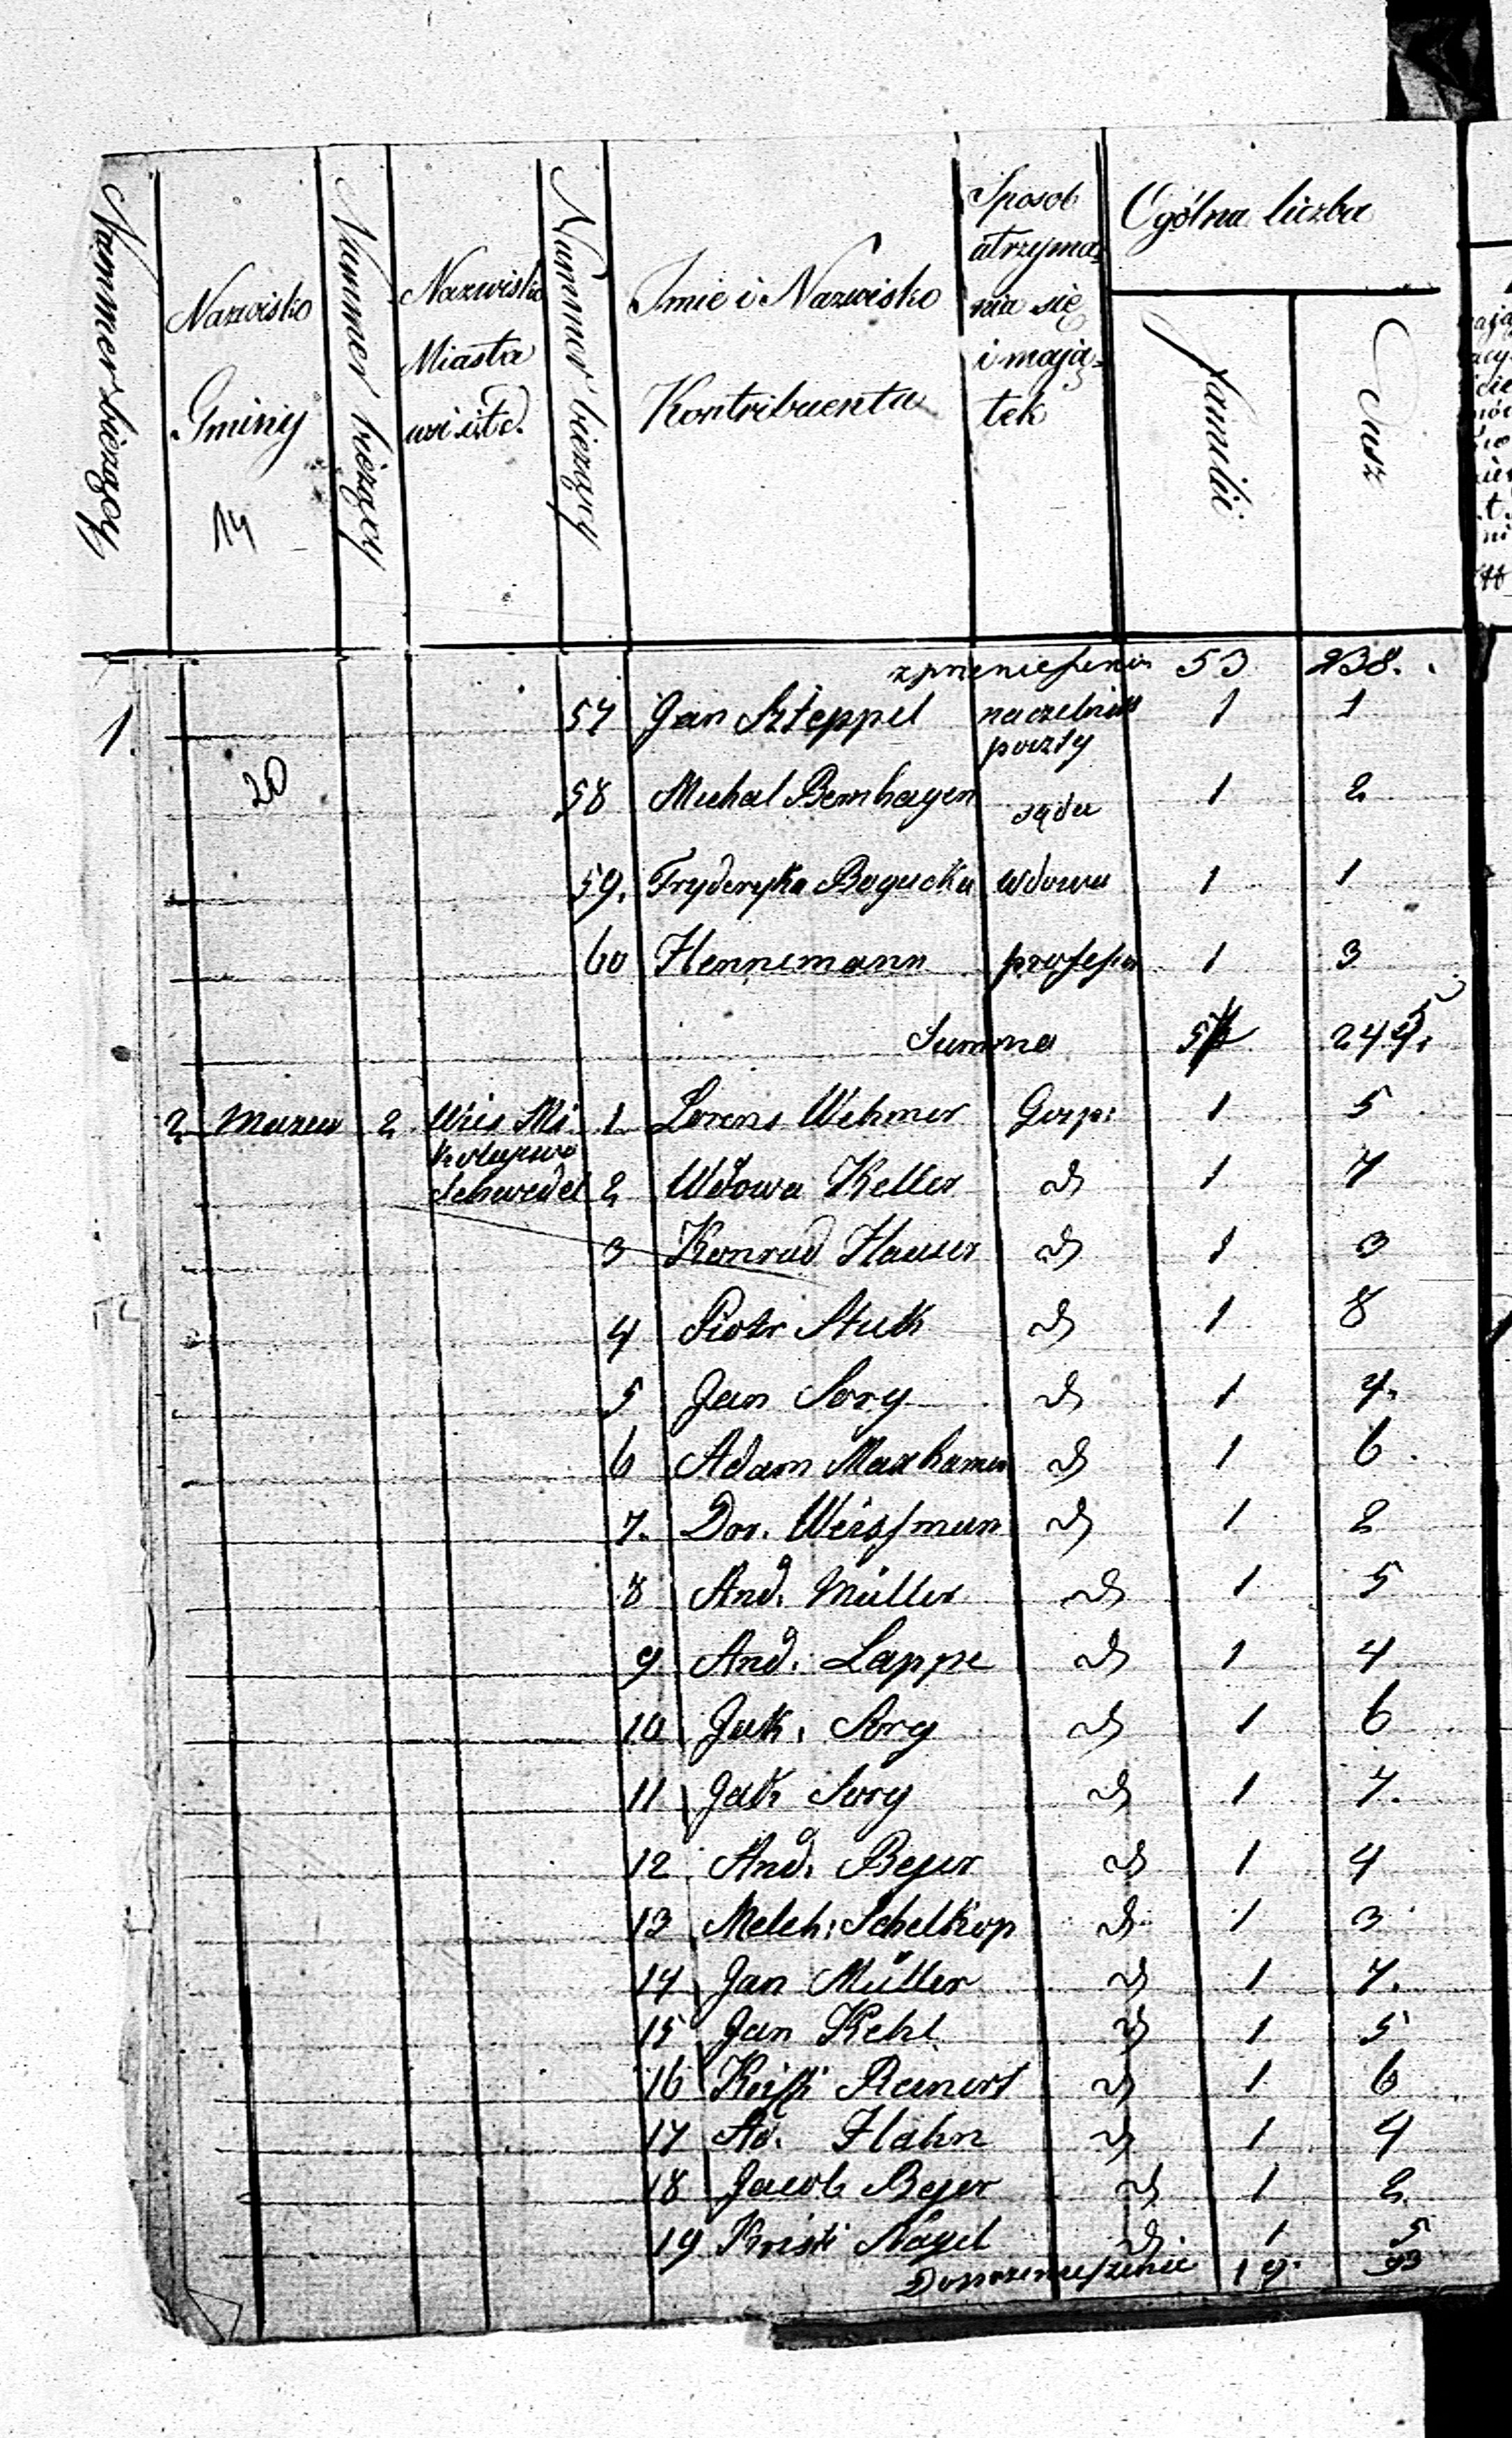 Nummer bieżący
Nazwisko Gminy
Nummer bieżący
Nazwisko Miasta wsi itd.
Nummer bieżący
Imie i Nazwisko Kontribuenta
Sposob utrzyma= nia się i mają= tek
Ogólna liczba
familii
Dusz
14
zprzeniesienia 53 238.
1. 57 Jan Szteppel naczelnik poczty 1 1
20
58 Michal Bernhagen sądu 1 2
59. Fryderyka Bogucka wdowa 1 1
60 Hennemann professor 1 3
Summa 57 245.
2 Mazew 2 Wies Mi 1 Lorens Wehmer Gosp: 1 5
kolajewo
Schwedel 2 Wdowa Keller d 1 7
3 Konrad Hauser d 1 3
4 Piotr Stuck d 1 8
5 Jan Sorg d 1 4.
6 Adam Maxhamer d 1 6
7. Dor. Weissman d 1 2
8 And. Müller d 1 5
9 And. Lappe d 1 4
10 Jak. Sorg d 1 6
11 Jak Sorg d 1 7.
12 And. Bejer d 1 4
13 Melch: Schelkop d 1 3
14 Jan Müller d 1 7.
15 Jan Kehl d 1 5
16 Reinert d 1 6
17 Ad. Hahn d 1 4
18 Jacob Bejer d 1 2
19 Kristi Nagel d 1 5
Doprzeniesienie 19. 93